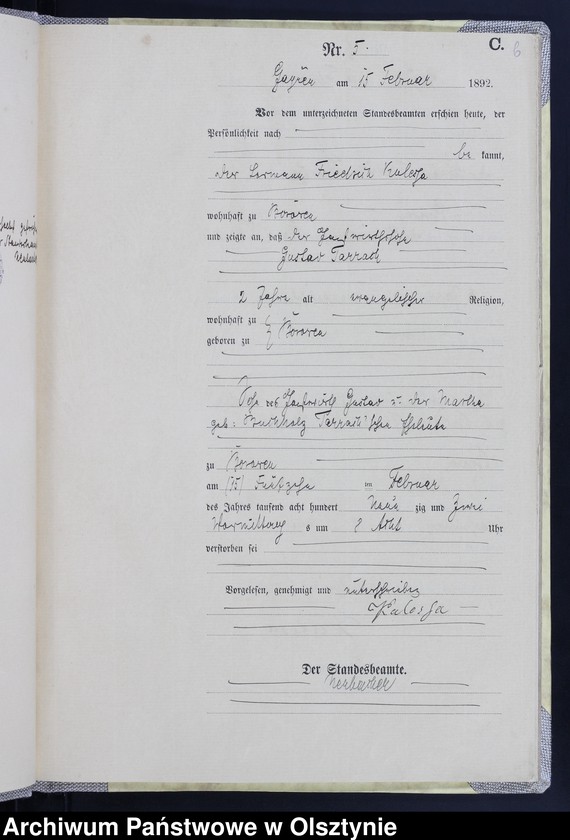 C.
6
Nr. 5.
am 15 Februar 1892.
Vor dem unterzeichneten Standesbeamten erschien heute, der
Persönlichkeit nach
be kannt,
der Friedrich Kulessa
wohnhaft zu Bororen
und zeigte an, daß der
Gustav Tarrach
2 Jahre alt evangelischer Religion,
wohnhaft zu
geboren zu Bororen
Sohn des Gustav u. der Martha
geb: Buchholz Tarrach'schen Eheleute
zu Bororen
am (15) Fünfzehn im Februar
des Jahres tausend acht hundert Neun zig und Zwei
Vormittag s um 8 Acht Uhr
verstorben sei
Vorgelesen, genehmigt und unterschrieben
Kulessa
Der Standesbeamte.
Archiwum Państwowe w Olsztynie